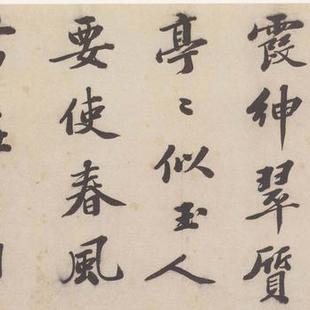 霞紳翠質
亭〻似玉人
要使春風